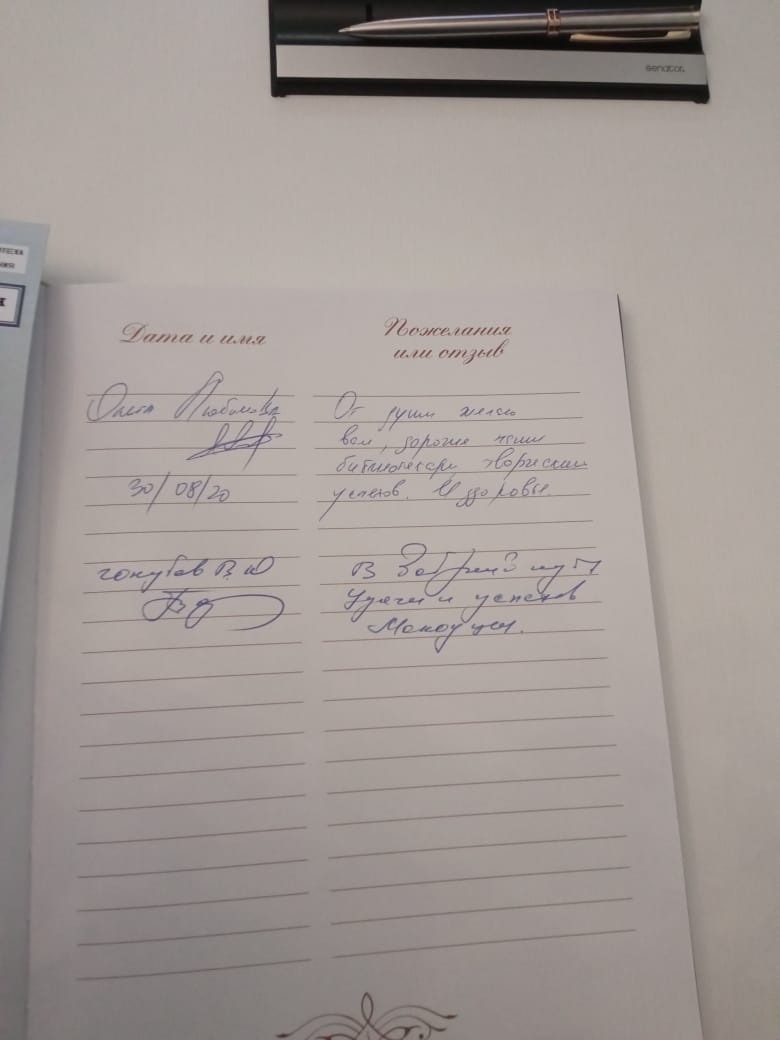 senator.
ОТЕКА
НИЯ
Я
Дата и имя
Пожелания
или отзыв
Ольга Любимова
30/08/20
От души желаю
вам, дорогие наши
библиотекари творческих
успехов. И здоровья.
голубев В Ю
В Добрый путь
Удачи и успехов
Молодцы.